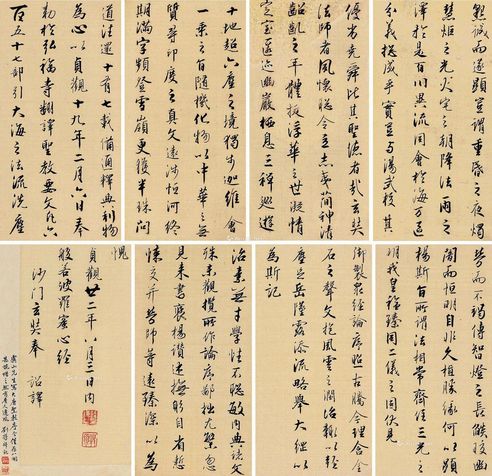 然誠而遂顯首重昏之夜燭
慧炬之光火宅之朝降法雨之
澤於是百川異流同會於海萬區
分義總成乎實豈與湯武校其
優劣堯舜比其聖德者哉玄奘
法師者夙懷聰令立志夷簡神清
齠齔之年體拔浮華之世凝情
定室匿迹幽巖栖息三禪巡遊
十地超六塵之境獨步迦維會
一乘之旨隨機化物以中華之無
質尋印度之真文遠涉恒河終
期滿字頻登雪嶺更獲半珠問
道法還十有七載備通釋典利物
為心以貞觀十九年二月六日奉
勅於弘福寺翻譯聖教要文凡六
百五十七部引大海之法流洗塵
勞而不竭傳智燈之長焰皎幽
闇而恒明自非久植勝緣何以顯
揚斯旨所謂法相常齊住三光之
明我皇福臻同二儀之固伏見
御製眾經論序照古騰今理含金
石之聲文抱風雲之潤治輒以輕
塵足岳墜露添流略舉大綱以
為斯記
治素無才學性不聰敏內典諸文
殊未觀攬所作論序鄙拙尤繁忽
見來書褒揚讚述撫躬自省慙
悚交并勞師等遠臻深以為
愧
貞觀廿二年八月三日內
般若波羅蜜心經
沙門玄奘奉詔譯